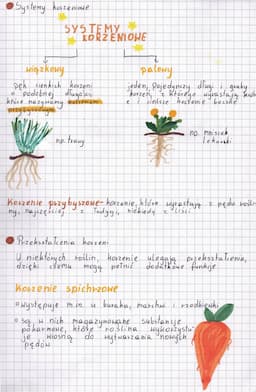 Systemy korzeniowe
SYSTEMY
KORZENIOWE
wiązkowy
palowy
pęk cienkich korzeni
o podobnej długości
które nazywamy korzeniami
przybyszowymi
jeden, pojedynczy długi i gruby
korzeń, z którego wyrastają
cieńsze korzenie boczne
np. trawy
np. mniszek
lekarski
Korzenie przybyszowe - korzenie, które wyrastają z pędu rośli-
ny, najczęściej z łodygi, niekiedy z liści.
Przekształcenia korzeni
U niektórych roślin, korzenie ulegają przekształceniu,
dzięki czemu mogą pełnić dodatkowe funkcje
Korzenie spichrzowe
występuje m.in u buraka, marchwi i rzodkiewki
są w nich magazynowane substancje
pokarmowe, które roślina wykorzystu-
je wiosną do wytwarzania nowych
pędów